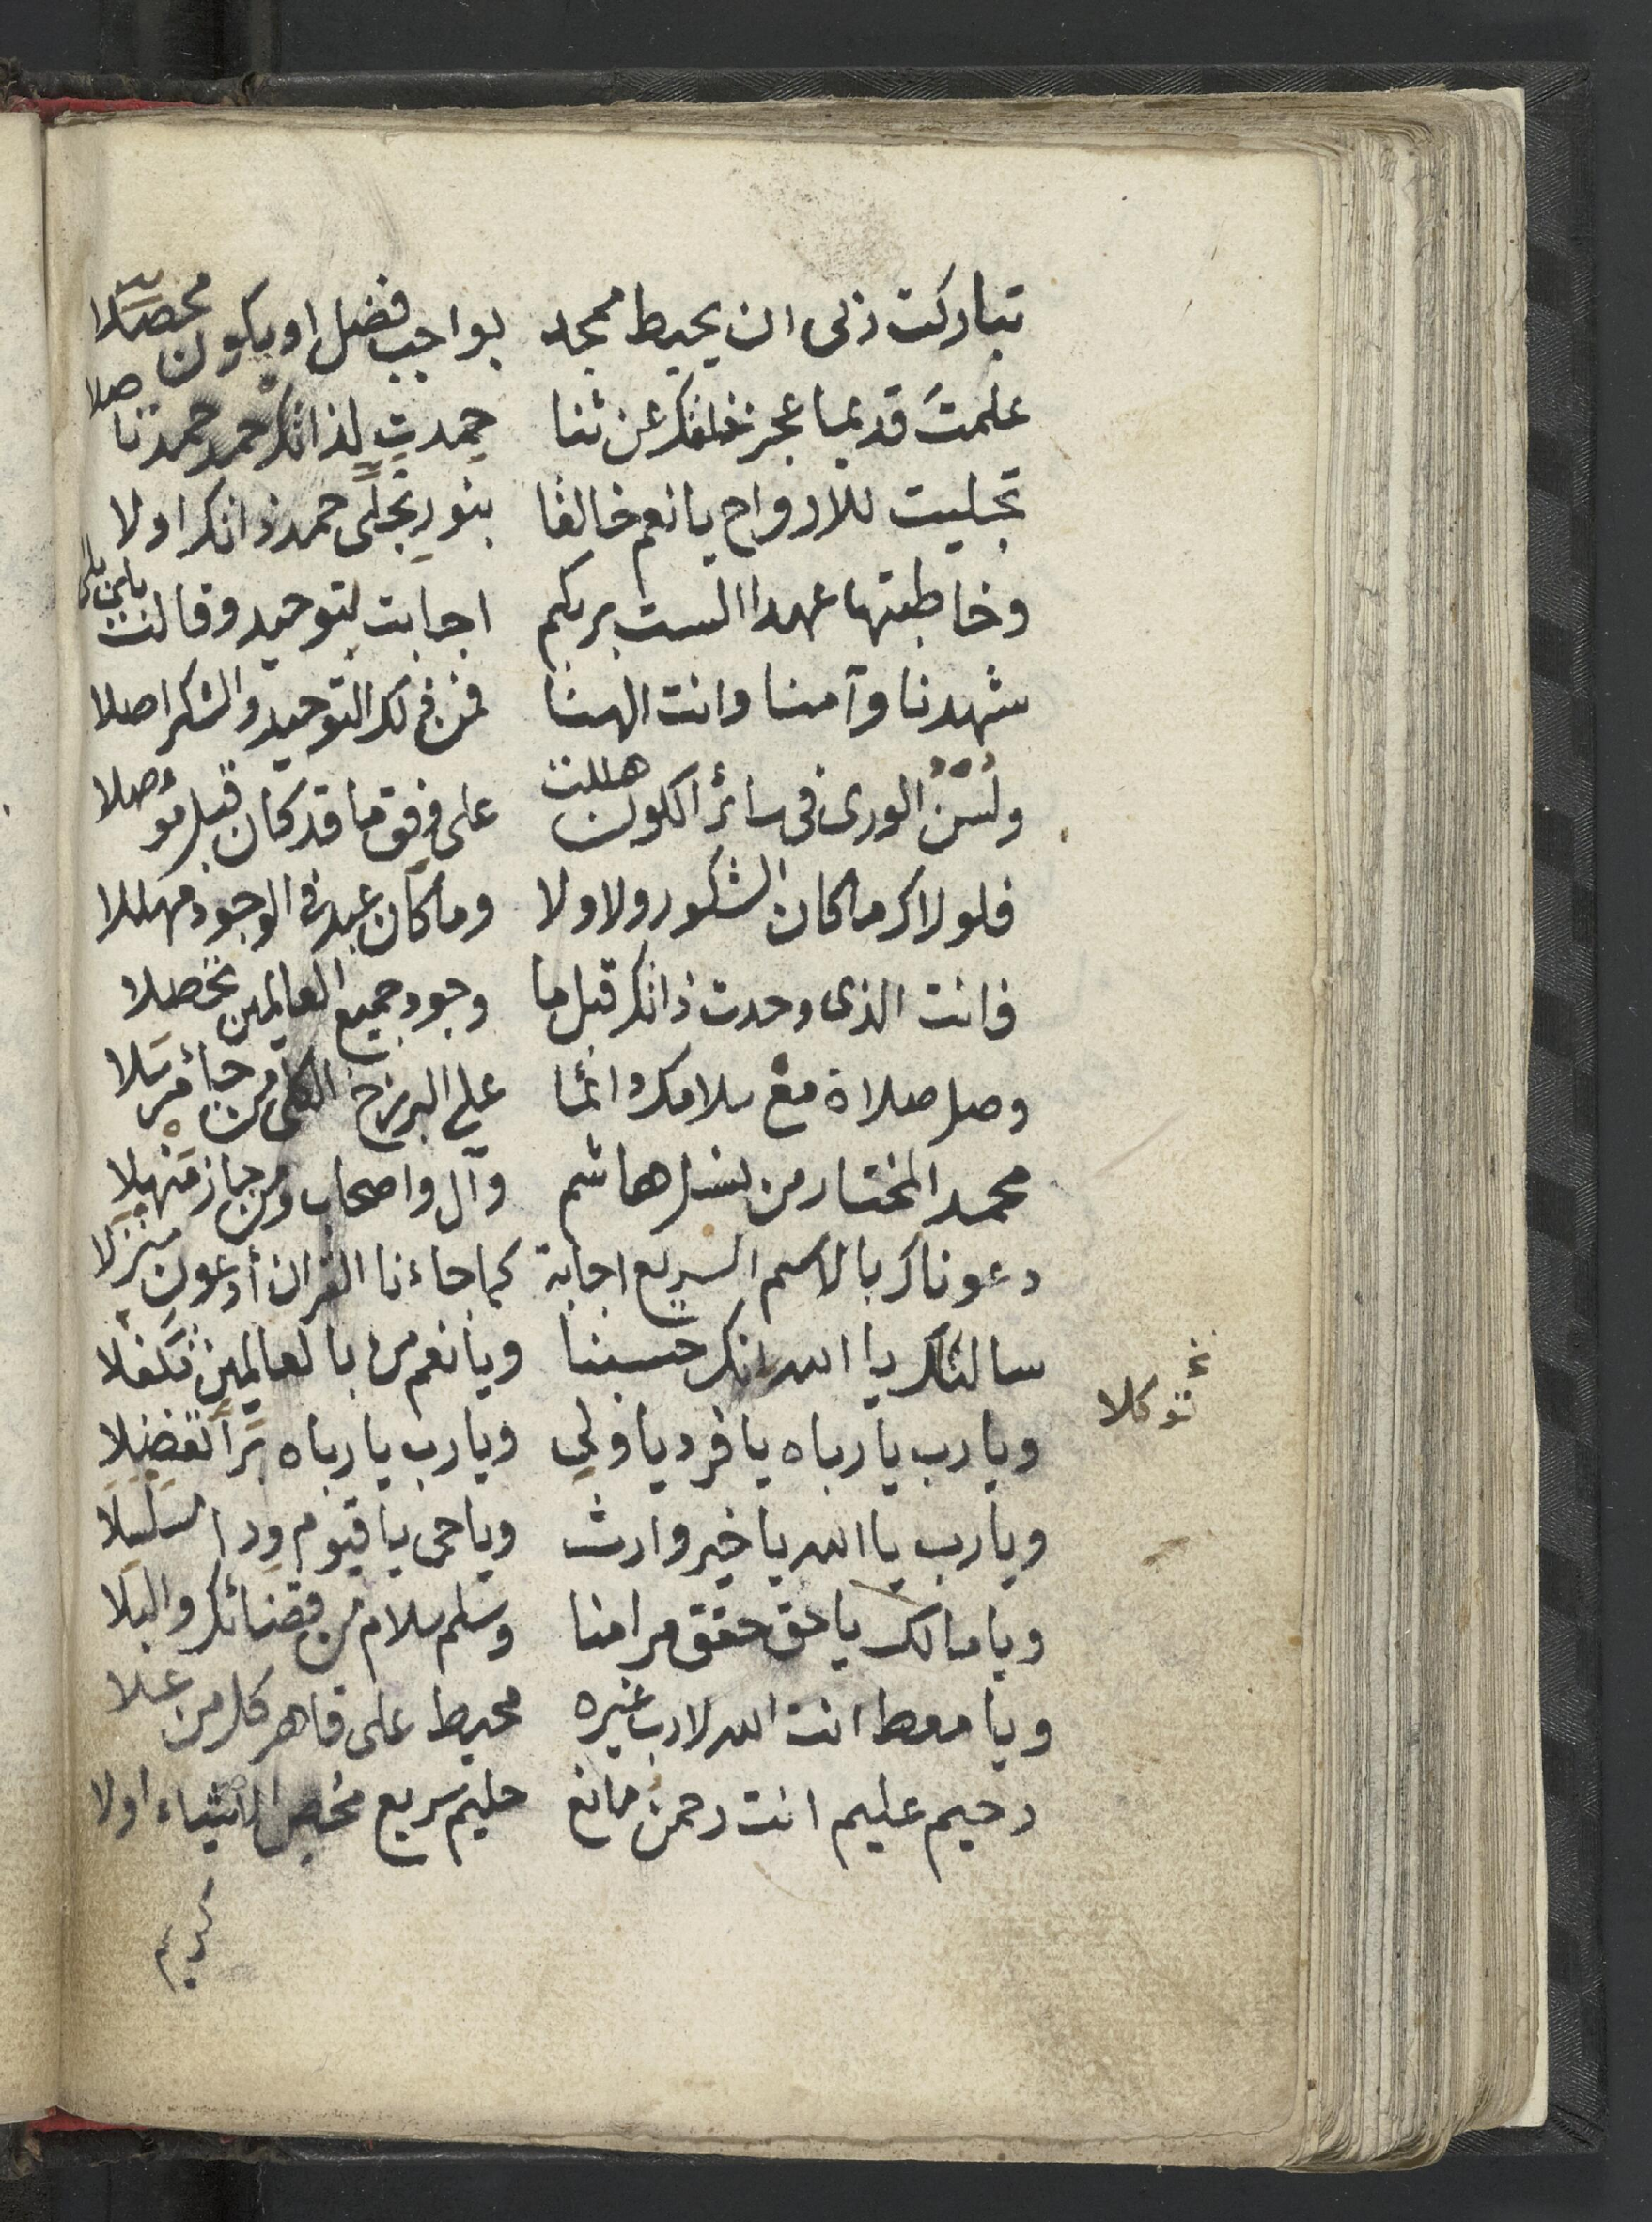 تباركت ربى ان يحيط ممجد بواجب فضل او يكون محصلا
علمتَ قديما عجز خلقك عن ثنا حمدت لذاتك حمد حمدنا صلا
تجليت للارواح يا نعم خالقا بنور تجلى حمد ذاتك اولا
وخاطبتها عهدا الست بربكم اجابت بتوحيد وقالت بلى
شهدنا وآمنا وانت الهنا فمن ذلك التوحيد والشكر اصلا
ولُسْنُ الورى فى سائر الكون هللت على وفق ما قد كان قبل مؤصلا
فلولاك ما كان الشكور ولا ولا وما كان عبد فى الوجود مهللا
فانت الذى وحدت ذاتك قبل ما وجود جميع العالمين تحصلا
وصل صلاة مع سلامك دائما على البرزخ الكلى من جاء مرسلا
محمد المختار من نسل هاشم وآل واصحاب ومن جاز منهلا
دعوناك بالاسم السريع اجابة كما جاءنا القران أدعون منزلا
سالناك يا الله انك حسبنا ويا نعم من بالعالمين تكفلا
نخ توكلا
ويا رب يا رباه يا فرد يا ولى ويا رب يا رباه بَرًا تفضلا
ويا رب يا الله يا خير وارث ويا حى يا قيوم ود
ويا مالك يا حق حقق مرامنا وسلم سلام من قضائك والبلا
ويا معط انت الله لا رب غيره محيط على قاهر كل من علا
رحيم عليم انت رحمن مانع حليم سريع محص الاشياء اولا
كريم